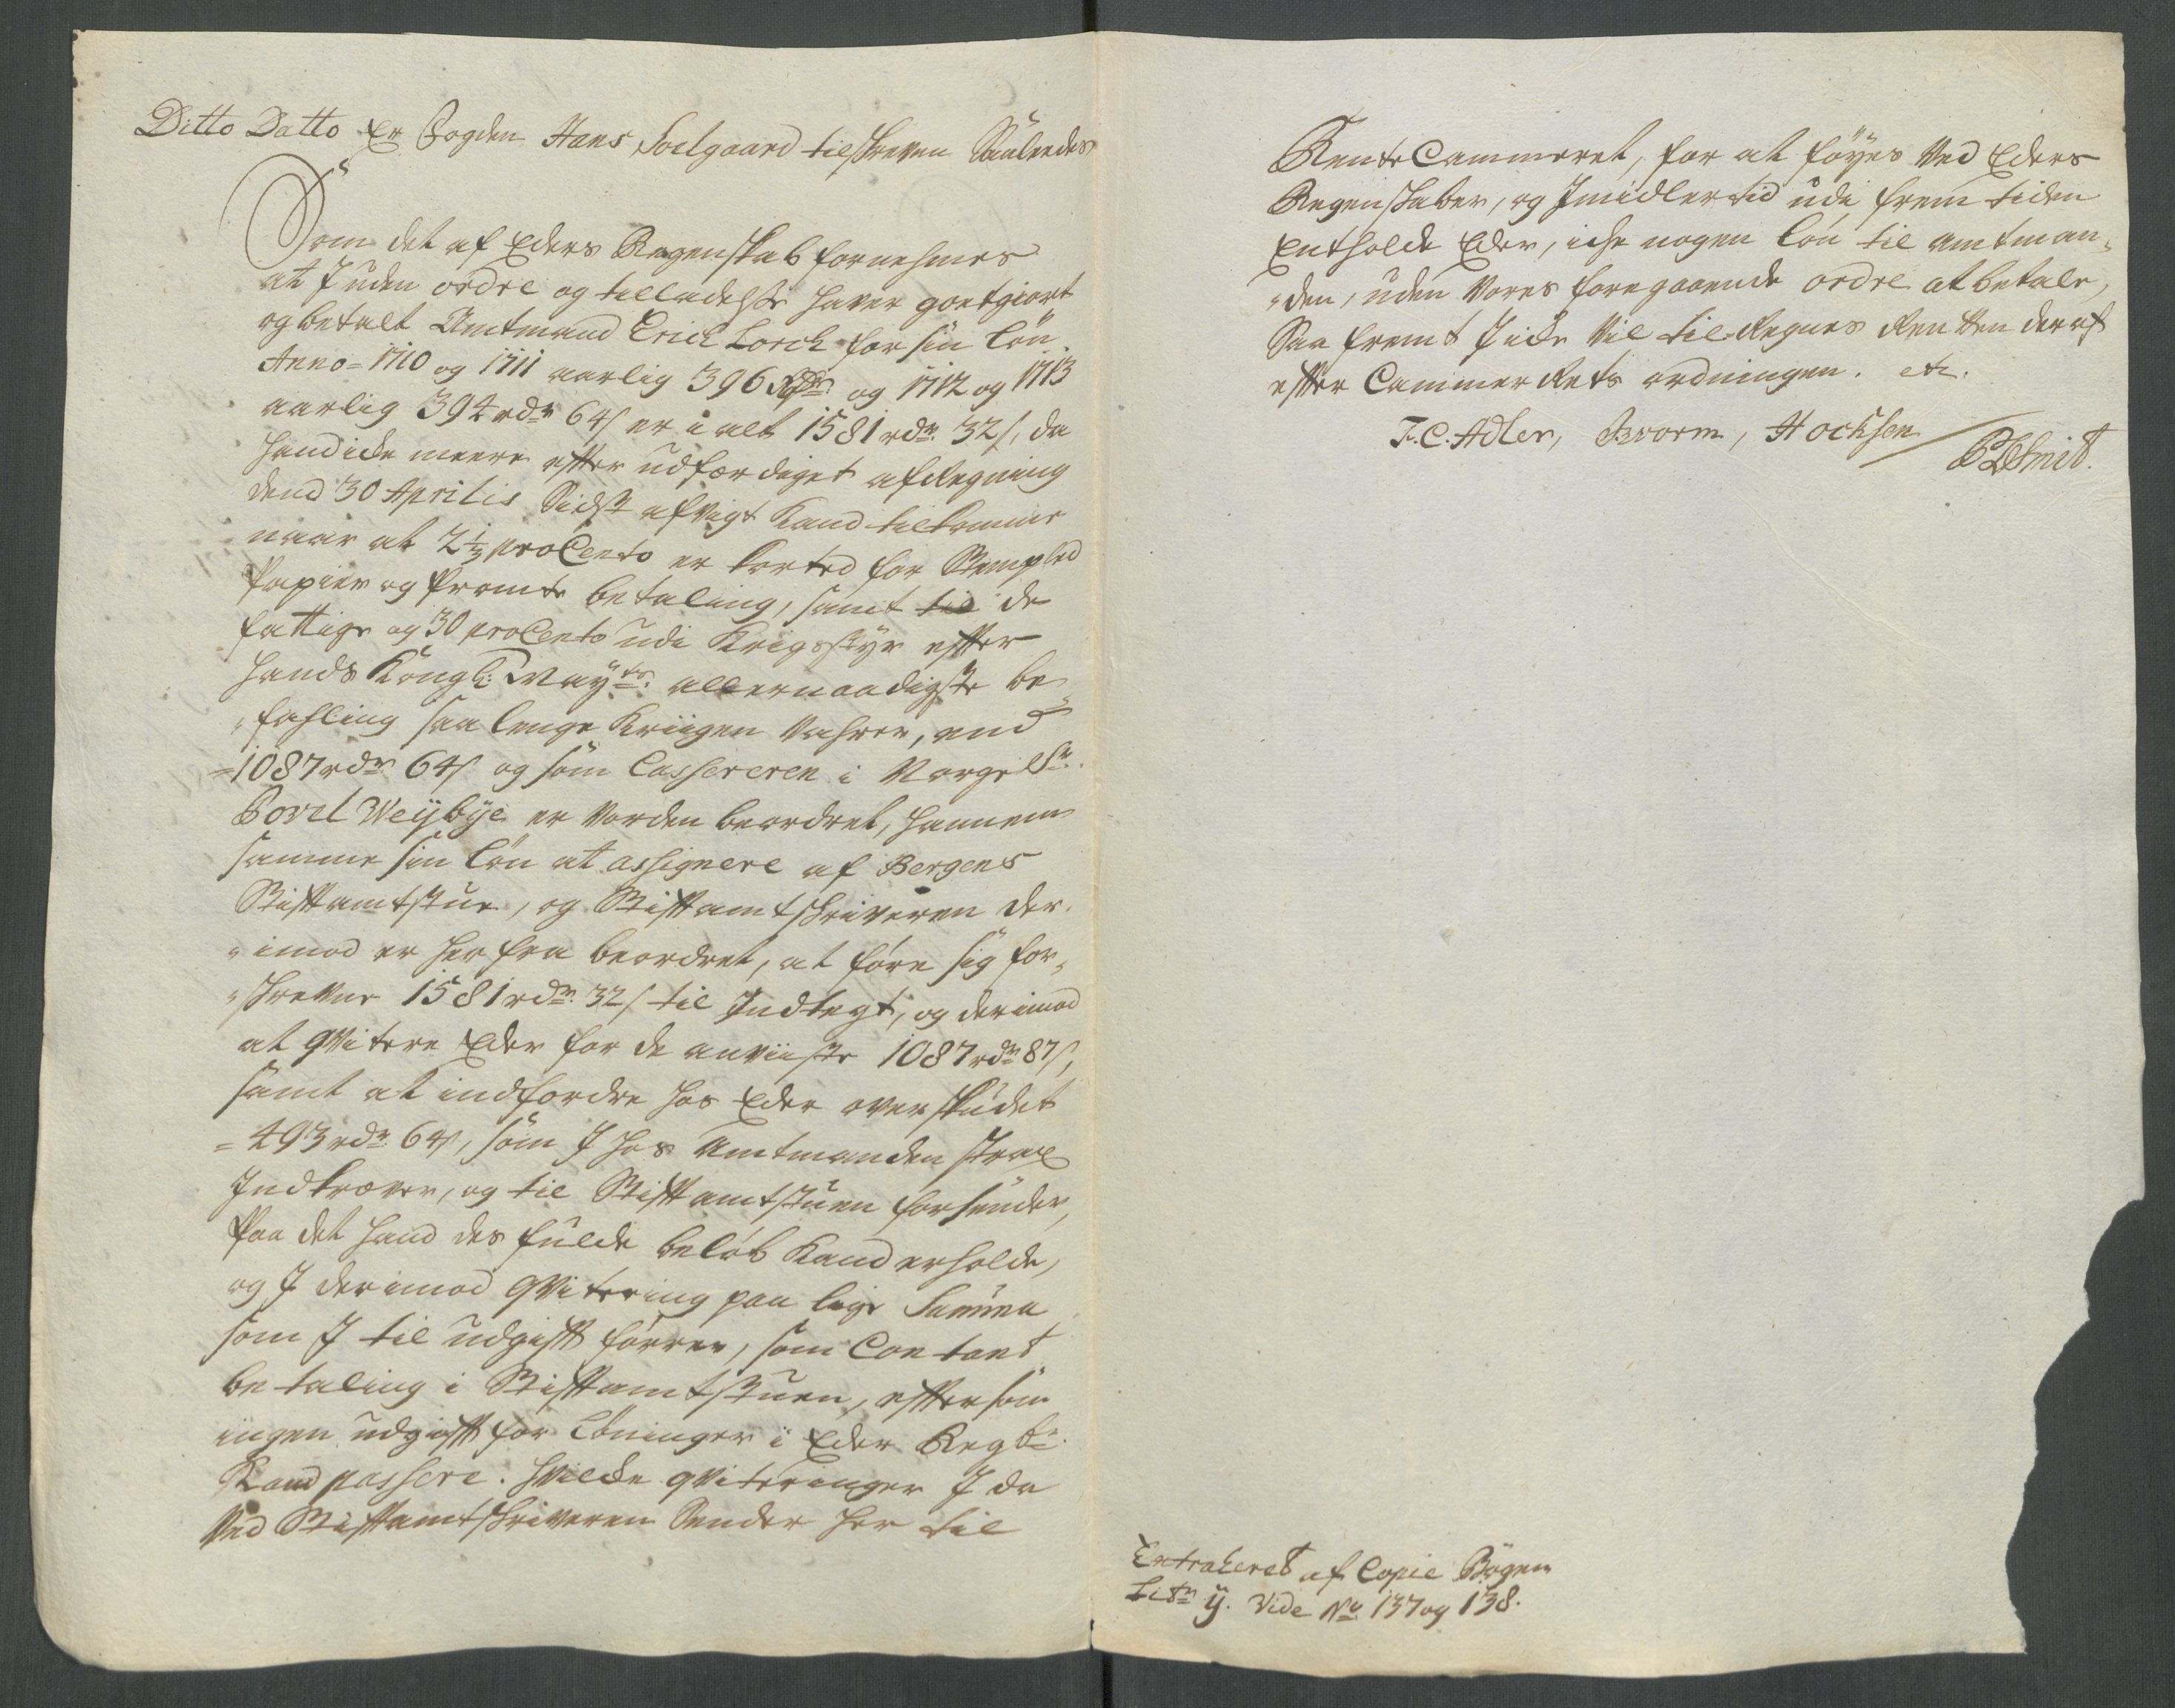 Ditto Datto Er Fogden Hans Soelgaard tilskreven Saaledes
Som det af Eders Regenskab fornehmes
at I uden ordre og tilladelse haver goetgiort
og betalt Amtmand Erich Lorch for sin Løn
Anno = 1710 og 1711 aarlig 396 Rdr og 1712 og 1713
aarlig 394 rdr 64 s er i alt 1581 rdr 32 s, da
hand icke meere efter udfærdiget afRegning
dend 30 Aprilis Sidst afvigt Kand tilkomme
naar at 2½ proCento er kortted for Stempled
Papiir og Promte betaling, samt til de
fattige og 30 proCento udi Krigsstyr efter
hands Kongl: Mayts: allernaadigste be„
„fahling saa lenge Kriigen Vahrer, end
= 1087 rdr 64 s og som Cassereren i Norge Sr.
Povel Weybye er vorden beordret, hannem
samme sin Løn at assignere af Bergens
Stiftamtstue, og Stiftamtskriveren der„
„imod er her fra beordret, at føre sig for„
„skrevne 1581 rdr 32 s til Indtegt, og derimod
at qvitere Eder for de anviiste 1087 rdr 87 s,
samt at indfordre hos Eder overskudet
= 493 rdr 64 s, som I hos Amtmanden strax
Indkræver, og til Stiftamtstuen forsender,
Paa det hand des fulde beløb Kand erholde,
og I derimod qvitering paa lige Summa,
som I til udgift fører, som Contant
betaling i Stiftamtstuen, eftersom
ingen udgift for Løninger i Eder Regsk:
Kand passere. hvilcke qviteringer I da
Ved Stiftamtskriveren Sender her til
RenteCammeret, for at føyes Ved Eders
Regenskaber, og Imidlertid udi fremtiden
Entholde Eder, icke nogen Løn til Amtman„
„den, uden Vores foregaaende ordre at betale,
Saa fremt I icke Vil tilRegnes Renten deraf
efter Cammer Rets ordningen. etc.
F. C. Adler, Bworm, Hocksen / PDSmit.
Extraheret af Copie Bogen
Litr ÿ. Vide No 137 og 138.